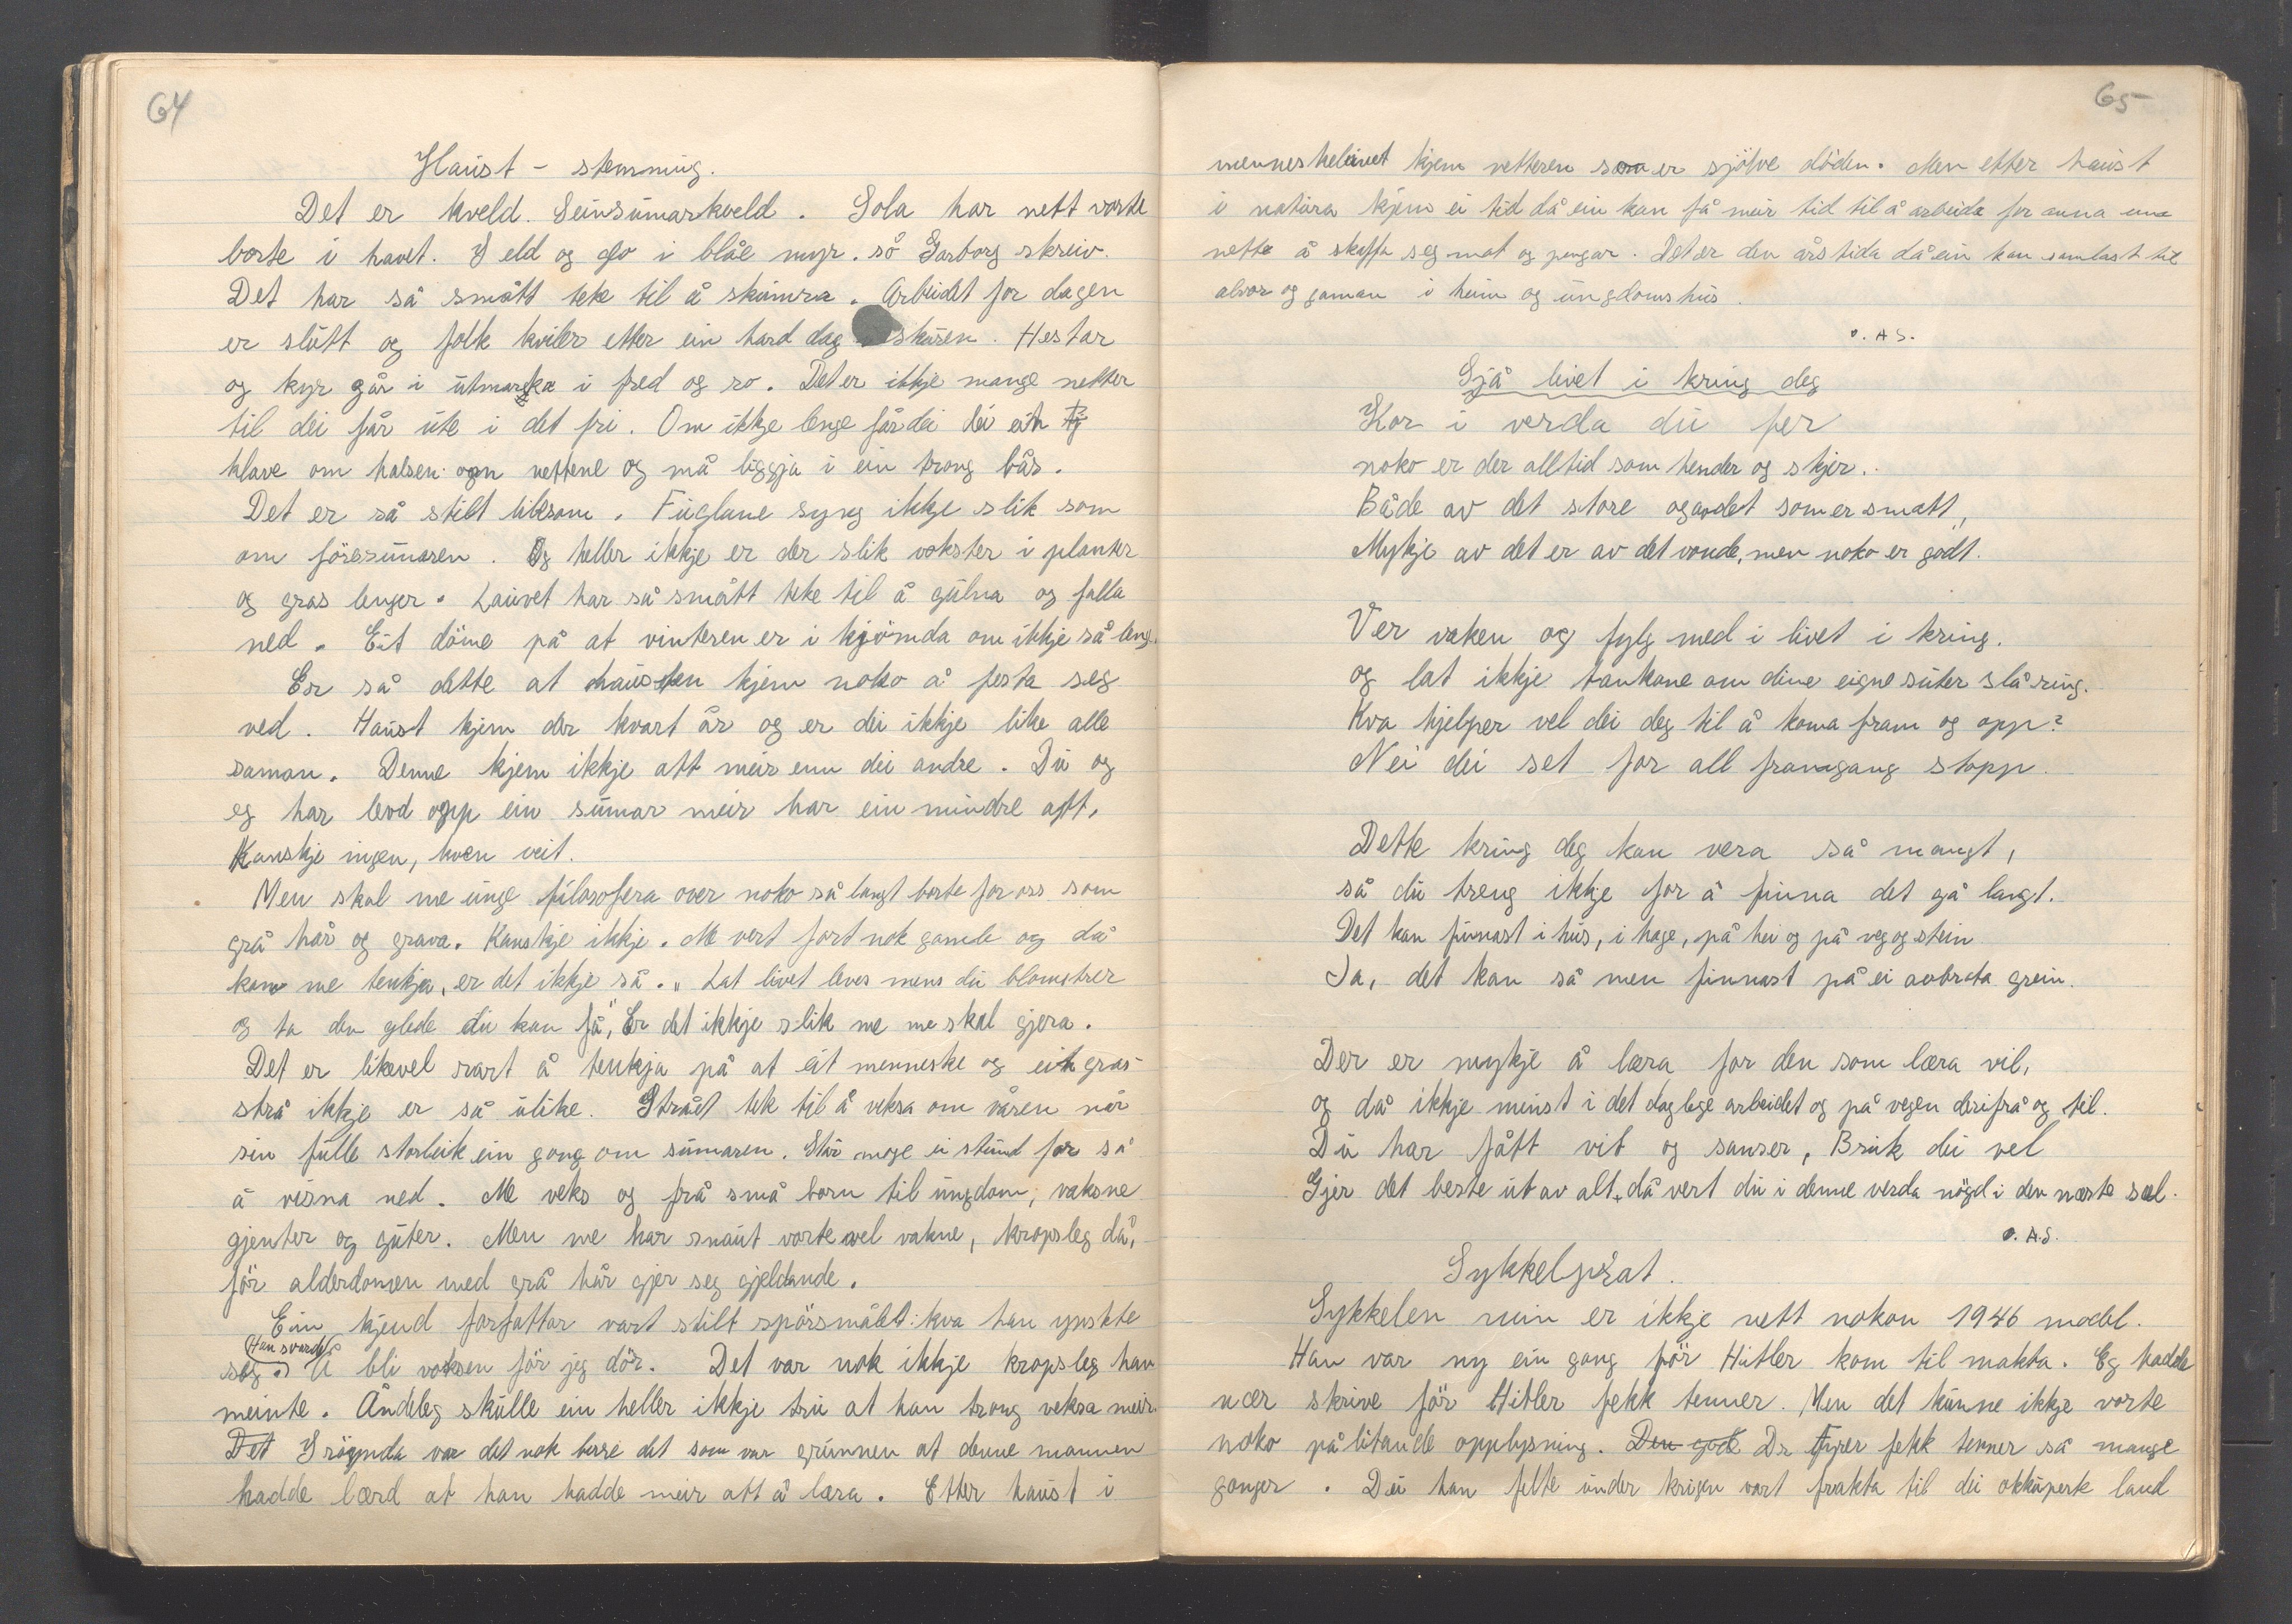 64
Haust - stemning.
Det er kveld. Seinsumarkveld. Sola har nett vorte
borte i havet. I eld og glo i blåe myr. så Garborg skreiv.
Det har så smått teke til å skumra. Arbeidet for dagen
er slutt og folk kviler etter ein hard dag skuren. Hestar
og kyr går i utmarka i fred og ro. Det er ikkje mange netter
til dei får ute i det fri. Om ikkje lenge får dei ein
klave om halsen om nettene og må liggja i ein trong bås.
Det er så stilt liksom. Fuglane syng ikkje slik som
om föresumaren. Og heller ikkje er der slik vokster i planter
og gras lenger. Lauvet har så smått teke til å gulna og falla
ned. Eit döme på at vinteren er i kjömda om ikkje så leng.
Er så dette at hausten kjem noko å festa seg
ved. Haust kjem der kvart år og er dei ikkje like alle
saman. Denne kjem ikkje att meir enn dei andre. Du og
eg har levd opp ein sumar meir har ein mindre att.
Kanskje ingen, kven veit.
Men skal me unge filosofera over noko så langt borte for oss som
grå hår og grava. Kanskje ikkje. Me vert fort nok gamle og då
kan me tenkja, er det ikkje så. „Lat livet leves mens du blomstrer
og ta den glede du kan få", Er det ikkje slik me me skal gjera.
Det er likevel rart å tenkja på at eit menneske og eit gras-
strå ikkje er så ulike. Strået tek til å veksa om våren når
sin fulle storleik ein gong om sumaren. Står moge ei stund for så
å visna ned. Me veks og frå små born til ungdom, vaksne
gjenter og guter. Men me har snaut vorte vel vakne, kropsleg då,
för alderdomen med grå hår gjer seg gjeldande.
Ein kjend forfattar vart stilt spörsmålet: kva han ynskte
Han svarde
seg. Å bli voksen för jeg dör. Det var nok ikkje kropsleg han
meinte. Åndeleg skulle ein heller ikkje tru at han trong veksa meir.
Det I röynda var det nok berre det som var grunnen at denne mannen
hadde lærd at han hadde meir att å læra. Etter haust i
65
menneskelivet kjem vetteren som er sjölve döden. Men etter haust
i natura kjem ei tid då ein kan få meir tid til å arbeida for anna enn
nette å skaffa seg mat og pengar. Det er den årstida då ein kan samlast til
alvor og gaman i heim og ungdomshus.
O. A S.
Sjå livet i kring deg
Kor i verda du fer
noko er der alltid som hender og skjer.
Både av det store og av det som er smatt,
Mykje av det er av det vonde, men noko er godt.
Ver vaken og fylg med i livet i kring.
og lat ikkje tankane om dine eigne suter slå ring.
Kva hjelper vel dei deg til å koma fram og opp?
Nei dei set for all framgang stopp.
Dette kring deg kan vera så mangt,
så du treng ikkje for å finna det gå langt.
Det kan finnast i hus, i hage, på hei og på veg og stein
Ja, det kan så men finnast på ei avbrota grein.
Der er mykje å læra for den som læra vil,
og då ikkje minst i det daglege arbeidet og på vegen derifrå og til.
Du har fått vit og sanser, Bruk dei vel
Gjer det beste ut av alt, då vert du i denne verda nögd i den næste sæl.
O. A.S.
Sykkelprat.
Sykkelen min er ikkje nett nokon 1946 model.
Han var ny ein gong för Hitler kom til makta. Eg hadde
nær skrive för Hitler fekk tenner. Men det kunne ikkje vorte
noko pålitande opplysning. Den gode Dr Fyrer fekk tenner så mange
gonger. Dei han felte under krigen vart frakta til dei okkuperte land